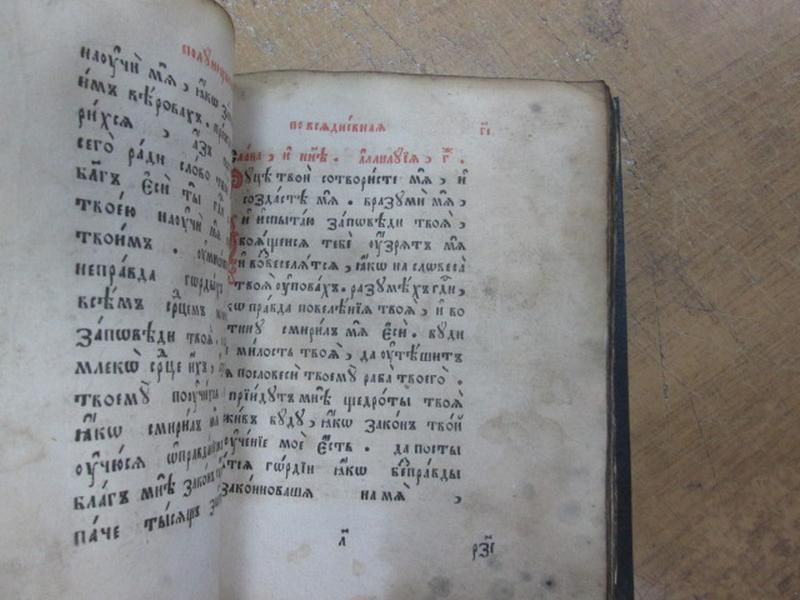 полунощни
наꙋчи́ мѧ̀, ꙗ҆́кѡ за
имъ вѣ́ровахъ. пре
ри́хсѧ, а҆́зъ
сего̀ ра́ди сло́во
бл҃гъ є҆сѝ ты̀ гдⷭ҇и
твоєю наꙋчи́ мѧ
твои́мъ. оу҆мно
непра́вда го́рдых
всѣ́мъ срⷣцемъ
за́пѡвѣди твоѧ̀.
млекѡ̀ срⷣце и҆́хъ,
твоємꙋ̀ поꙋчи́хс
ꙗ҆́кѡ смири́лъ мѧ
оу҆чю́сѧ ѡ҆правда́ни
бла́гъ мнѣ̀ зако́нъ
па́че ты́сѧщъ за
повсѧдне́внаѧ г҃і
сла́ва, и҆ ны́нѣ. а҆ллилꙋ́їѧ, г҃.
рꙋцѣ̀ твоѝ сотвори́сте мѧ̀, и҆
созда́стѣ мѧ̀. вразꙋми́ мѧ̀,
и҆ и҆спыта́ю за́пѡвѣди твоѧ̀,
боѧ́щеисѧ тебѐ оу҆́зрѧтъ мѧ̀
и҆ возвеселѧ́тсѧ, ꙗ҆́кѡ на словеса̀
твоѧ̀ оу҆пова́хъ. разꙋмѣ́хъ гдⷭ҇и,
кѡ пра́вда повелѣ́нїѧ твоѧ̀, и҆ во
тинꙋ смири́лъ мѧ̀ є҆сѝ. бꙋди
ми́лость твоѧ̀, да оу҆тѣ́шитъ
ѧ пословеси̏ твоемꙋ̀ раба̀ твоего̀.
прїи́дꙋтъ мнѣ̀ щедро́ты твоѧ̀
жи́въ бꙋ́дꙋ, ꙗ҆́кѡ зако́нъ тво́й
оу҆че́нїе моѐ є҆́сть. да посты
тсѧ го́рдїи ꙗ҆́кѡ беспра́вды
зако́нновашѧ на мѧ̀,
л҃ рѯ҃і